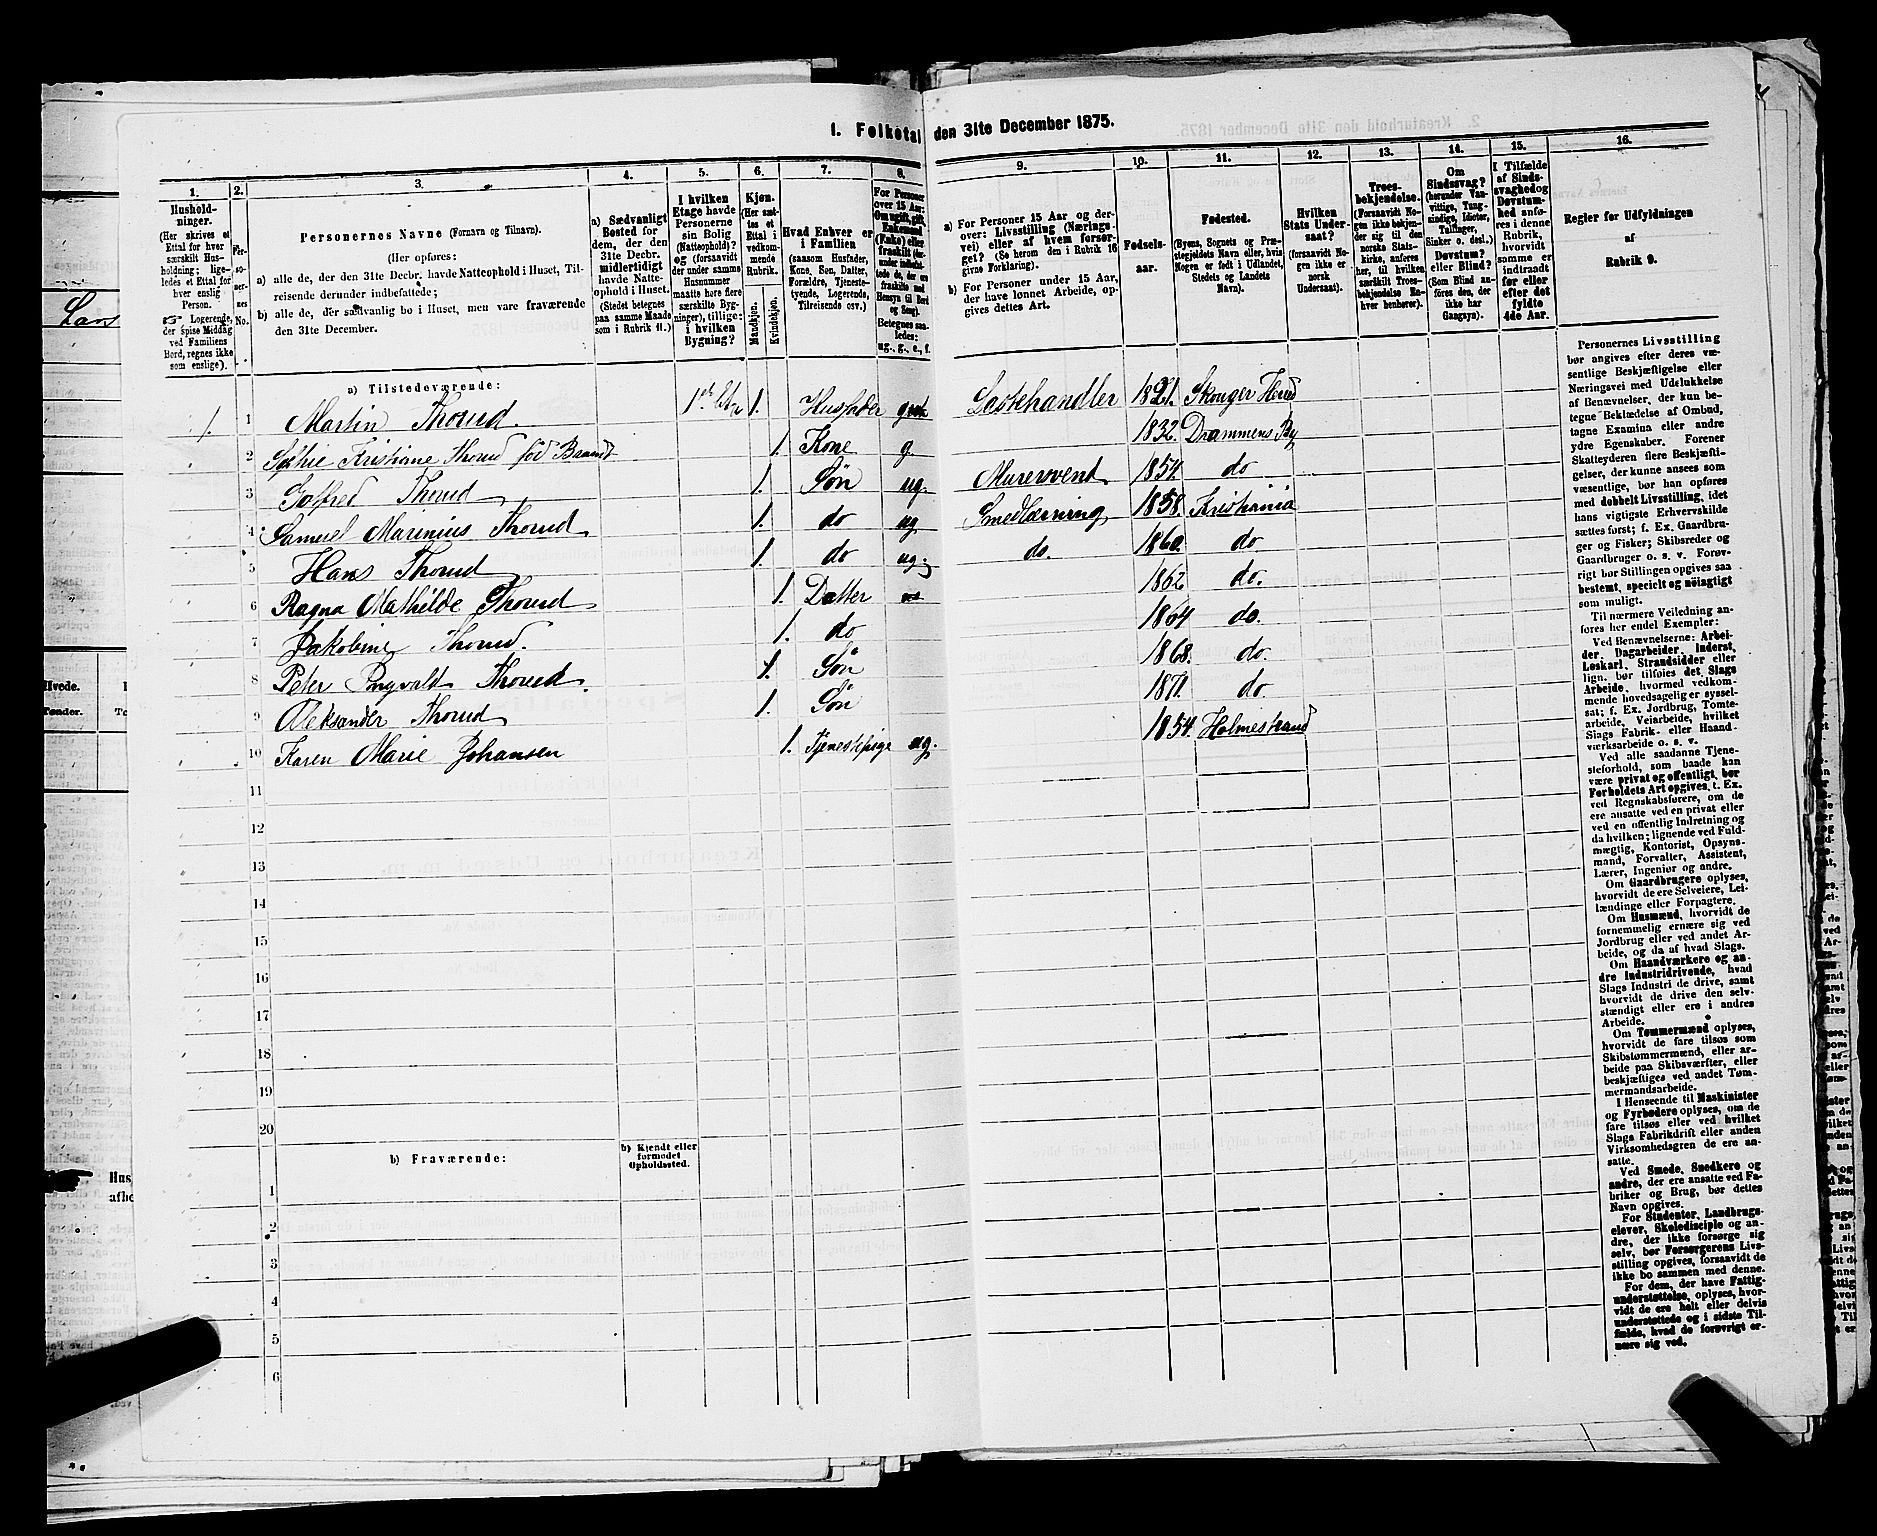 1. Folketal den 31te December 1875.
1. 2. 3. 4. 5. 6. 7. 8. 9. 10. 11. 12. 13. 14. 15. 16.
Hushold-
ninger.
(Her skrives et
Ettal for hver
særskilt Hus-
holdning; lige-
ledes et Ettal for
hver enslig
Person.
Logerende,
der spise Middag
ved Familiens
Bord, regnes ikke
som enslige).
Per-
so-
ner-
nes
No.
Personernes Navne (Fornavn og Tilnavn).
(Her opføres:
a) alle de, der den 31te Decbr. havde Natteophold i Huset, Til-
reisende derunder indbefattede;
b) alle de, der sædvanlig bo i Huset, men vare fraværende
den 31te December.
a) Sædvanligt
Bosted for
dem, der den
31te Decbr.
midlertidigt
havde Natte-
ophold i Huset.
(Stedet betegnes
paa samme Maade
som i Rubrik 11.)
I hvilken
Etage havde
Personerne
sin Bolig
(Natteophold)?
og (forsaavidt
der under samme
Husnummer
maatte høre flere
særskilte Byg-
ninger), tillige:
i hvilken
Bygning?
Kjøn.
(Her sæt-
tes et
Ettal i
vedkom-
mende
Rubrik.
Mandkjøn.
Kvindekjøn.
Hvad Enhver er
i Familien
(saasom Husfader,
Kone, Søn, Datter,
Forældre, Tjeneste-
tyende, Logerende,
Tilreisende osv.)
For Personer
over 15 Aar:
Om ugift, gift,
Enkemand
(Enke) eller
fraskilt
Betegnes saa-
ledes:
ug., g., e., f.
a) For Personer 15 Aar og der-
over: Livsstilling (Nærings-
vei) eller af hvem forsør-
get? (Se herom den i Rubrik 16
givne Forklaring).
b) For Personer under 15 Aar,
der have lønnet Arbeide, op-
gives dettes Art.
Fødsels-
aar.
Fødested.
(Byens, Sognets og Præ-
stegjeldets Navn eller, hvis
Nogen er født i Udlandet,
Stedets og Landets
Navn).
Hvilken
Stats Under-
saat?
(forsaavidt No-
gen ikke er
norsk
Undersaat).
Troes-
bekjendelse.
(Forsaavidt No-
gen ikke bekjen-
der sig til den
norske Stats-
kirke, anføres
her, til hvilken
særskilt Troes-
bekjendelse En-
hver henhører).
Om
Sindssvag?
(herunder Van-
vittige, Tung-
sindige, Idioter,
Tullinger,
Sinker o. desl.)
Døvstum?
eller Blind? (Som Blind an-
føres den, der
ikke har
Gangsyn).
I Tilfælde
af Sinds-
svaghed og
Døvstum-
hed anfø-
res i denne
Rubrik,
hvorvidt
samme er
indtraadt
før eller
efter det
fyldte
4de Aar.
Regler for Udfyldningen
af
Rubrik 9.
a) Tilstedeværende:
1. 1 Martin Thorud. 1. Husfader 1821. Skouger Herred
2 Sophie Kristiane Thorud fød Brandt 1. Kone g. 1832. Drammens By
3 Gotfred Thorud 1. Søn ug. Murersvend 1854. do
4 Samuel Marinius Thorud 1. do ug Smedlærning 1858. Kristiania
5 Hans Thorud 1. do ug. do. 1860. do
6 Ragna Mathilde Thorud 1. Datter 1862 do.
7 Jakobine Thorud. 1. do 1864 do.
8 Peter Ingvald Thorud. 1. Søn 1868. do.
9 Aleksander Thorud 1. Søn 1871. do
10 Karen Marie Johansen 1. Tjenestepige ug. 1854. Holmestrand
11
12
13
14
15
16
17
18
19
20
b) Fraværende:
b) Kjendt eller
formodet
Opholdssted.
1
2
3
4
5
6
Personernes Livsstilling
bør angives efter deres væ-
sentlige Beskjæftigelse eller
Næringsvei med Udelukkelse
af Benævnelser, der kun be-
tegne Beklædelse af Ombud,
tagne Examina eller andre
ydre Egenskaber. Forener
Skatteyderen flere Beskjæfti-
gelser, der kunne ansees som
væsentlige, bør han opføres
med dobbelt Livsstilling, idet
hans vigtigste Erhvervskilde
sættes først; f. Ex. Gaardbru-
ger og Fisker; Skibsreder og
Gaardbruger o. s. v. Forøv-
rigt bør Stillingen opgives saa
bestemt, specielt og nøiagtigt
som muligt.
Til nærmere Veiledning an-
føres her endel Exempler:
Ved Benævnelserne: Arbei-
der, Dagarbeider, Inderst,
Løskarl, Strandsidder eller
lign. bør tilføies det Slags
Arbeide, hvormed vedkom-
mende hovedsagelig er syssel-
sat; f. Ex. Jordbrug, Tomte-
arbeide, Veiarbeide, hvilket
Slags Fabrik- eller Haand-
værksarbeide o. s. v.
Ved alle saadanne Tjene-
steforhold, som baade kan
være privat og offentligt, bør
Forholdets Art opgives, t. Ex.
ved Regnskabsførere, om de
ere ansatte ved en privat eller
ved en offentlig Indretning og
da hvilken; lignende ved Fuld-
mægtig, Kontorist, Opsyns-
mand, Forvalter, Assistent,
Lærer, Ingeniør og andre.
Om Gaardbrugere oplyses,
hvorvidt de ere Selveiere, Lei-
lændinge eller Forpagtere.
Om Husmænd, hvorvidt de
fornemmelig ernære sig ved
Jordbrug eller ved andet Ar-
beide, og da af hvad Slags.
Om Haandværkere og an-
dre Industridrivende, hvad
Slags Industri de drive, samt
hvorvidt de drive den selv-
stændigt eller ere i andres
Arbeide.
Om Tømmermænd oplyses,
hvorvidt de fare tilsøs som
Skibstømmermænd, eller ar-
beide paa Skibsværfter, eller
beskjæftiges ved andet Tøm-
mermandsarbeide.
I Henseende til Maskinister
og Fyrbødere oplyses, om de
fare tilsøs eller ved hvilket
Slags Fabrikdrift eller anden
Virksomhedsgren de ere an-
satte.
Ved Smede, Snedkere og
andre, der ere ansatte ved Fa-
briker og Brug, bør dettes
Navn opgives.
For Studenter, Landbrugs-
elever, Skoledisciple og an-
dre, der ikke forsørge sig
selv, bør Forsørgerens Livs-
stilling opgives, forsaavidt de
ikke bo sammen med denne.
For dem, der have Fattig-
understøttelse, oplyses, hvor-
vidt de ere helt eller delvis
understøttede og i sidste Til-
fælde, hvad de forøvrigt er-
nære sig ved.